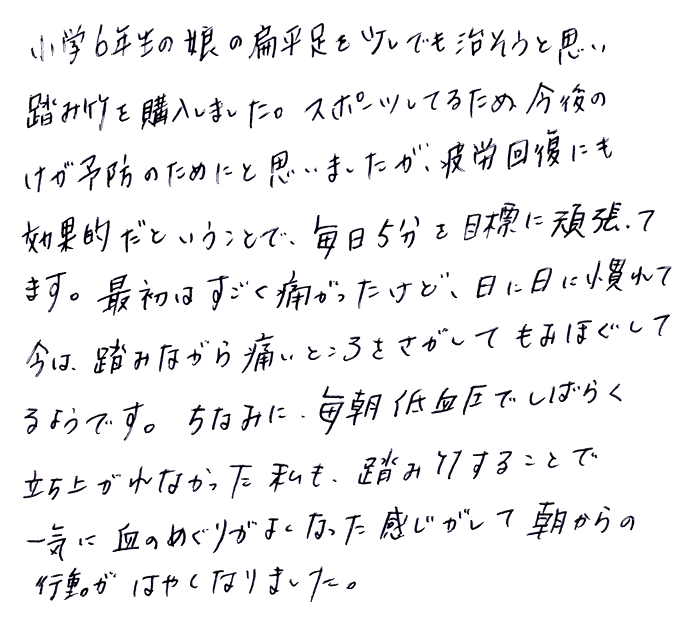 小学6年生の娘の扁平足を少しでも治そうと思い
踏み竹を購入しました。スポーツしてるため今後の
けが予防のためにと思いましたが、疲労回復にも
効果的だということで、毎日5分を目標に頑張って
ます。最初はすごく痛がったけど、日に日に慣れて
今は、踏みながら痛いところをさがしてもみほぐして
るようです。ちなみに、毎朝低血圧でしばらく
立ち上がれなかった私も、踏み竹することで
一気に血のめぐりがよくなった感じがして朝からの
行動がはやくなりました。